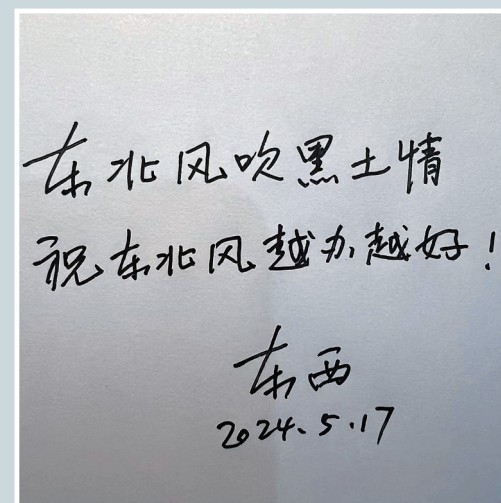 东北风吹黑土情
祝东北风越办越好！
东西
2024.5.17